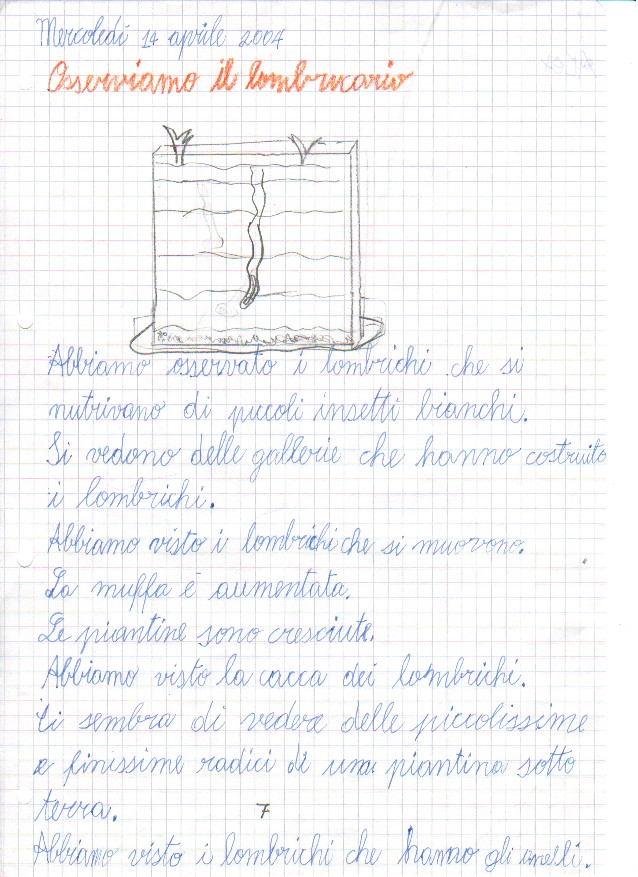 Mercoledì 14 aprile 2004
Osserviamo il lombricario
Abbiamo osservato i lombrichi che si
nutrivano di piccoli insetti bianchi.
Si vedono delle gallerie che hanno costruito
i lombrichi.
Abbiamo visto i lombrichi che si muovono.
La muffa è aumentata.
Le piantine sono cresciute.
Abbiamo visto la cacca dei lombrichi.
Ci sembra di vedere delle piccolissime
e finissime radici di una piantina sotto
terra.
7
Abbiamo visto i lombrichi che hanno gli anelli.